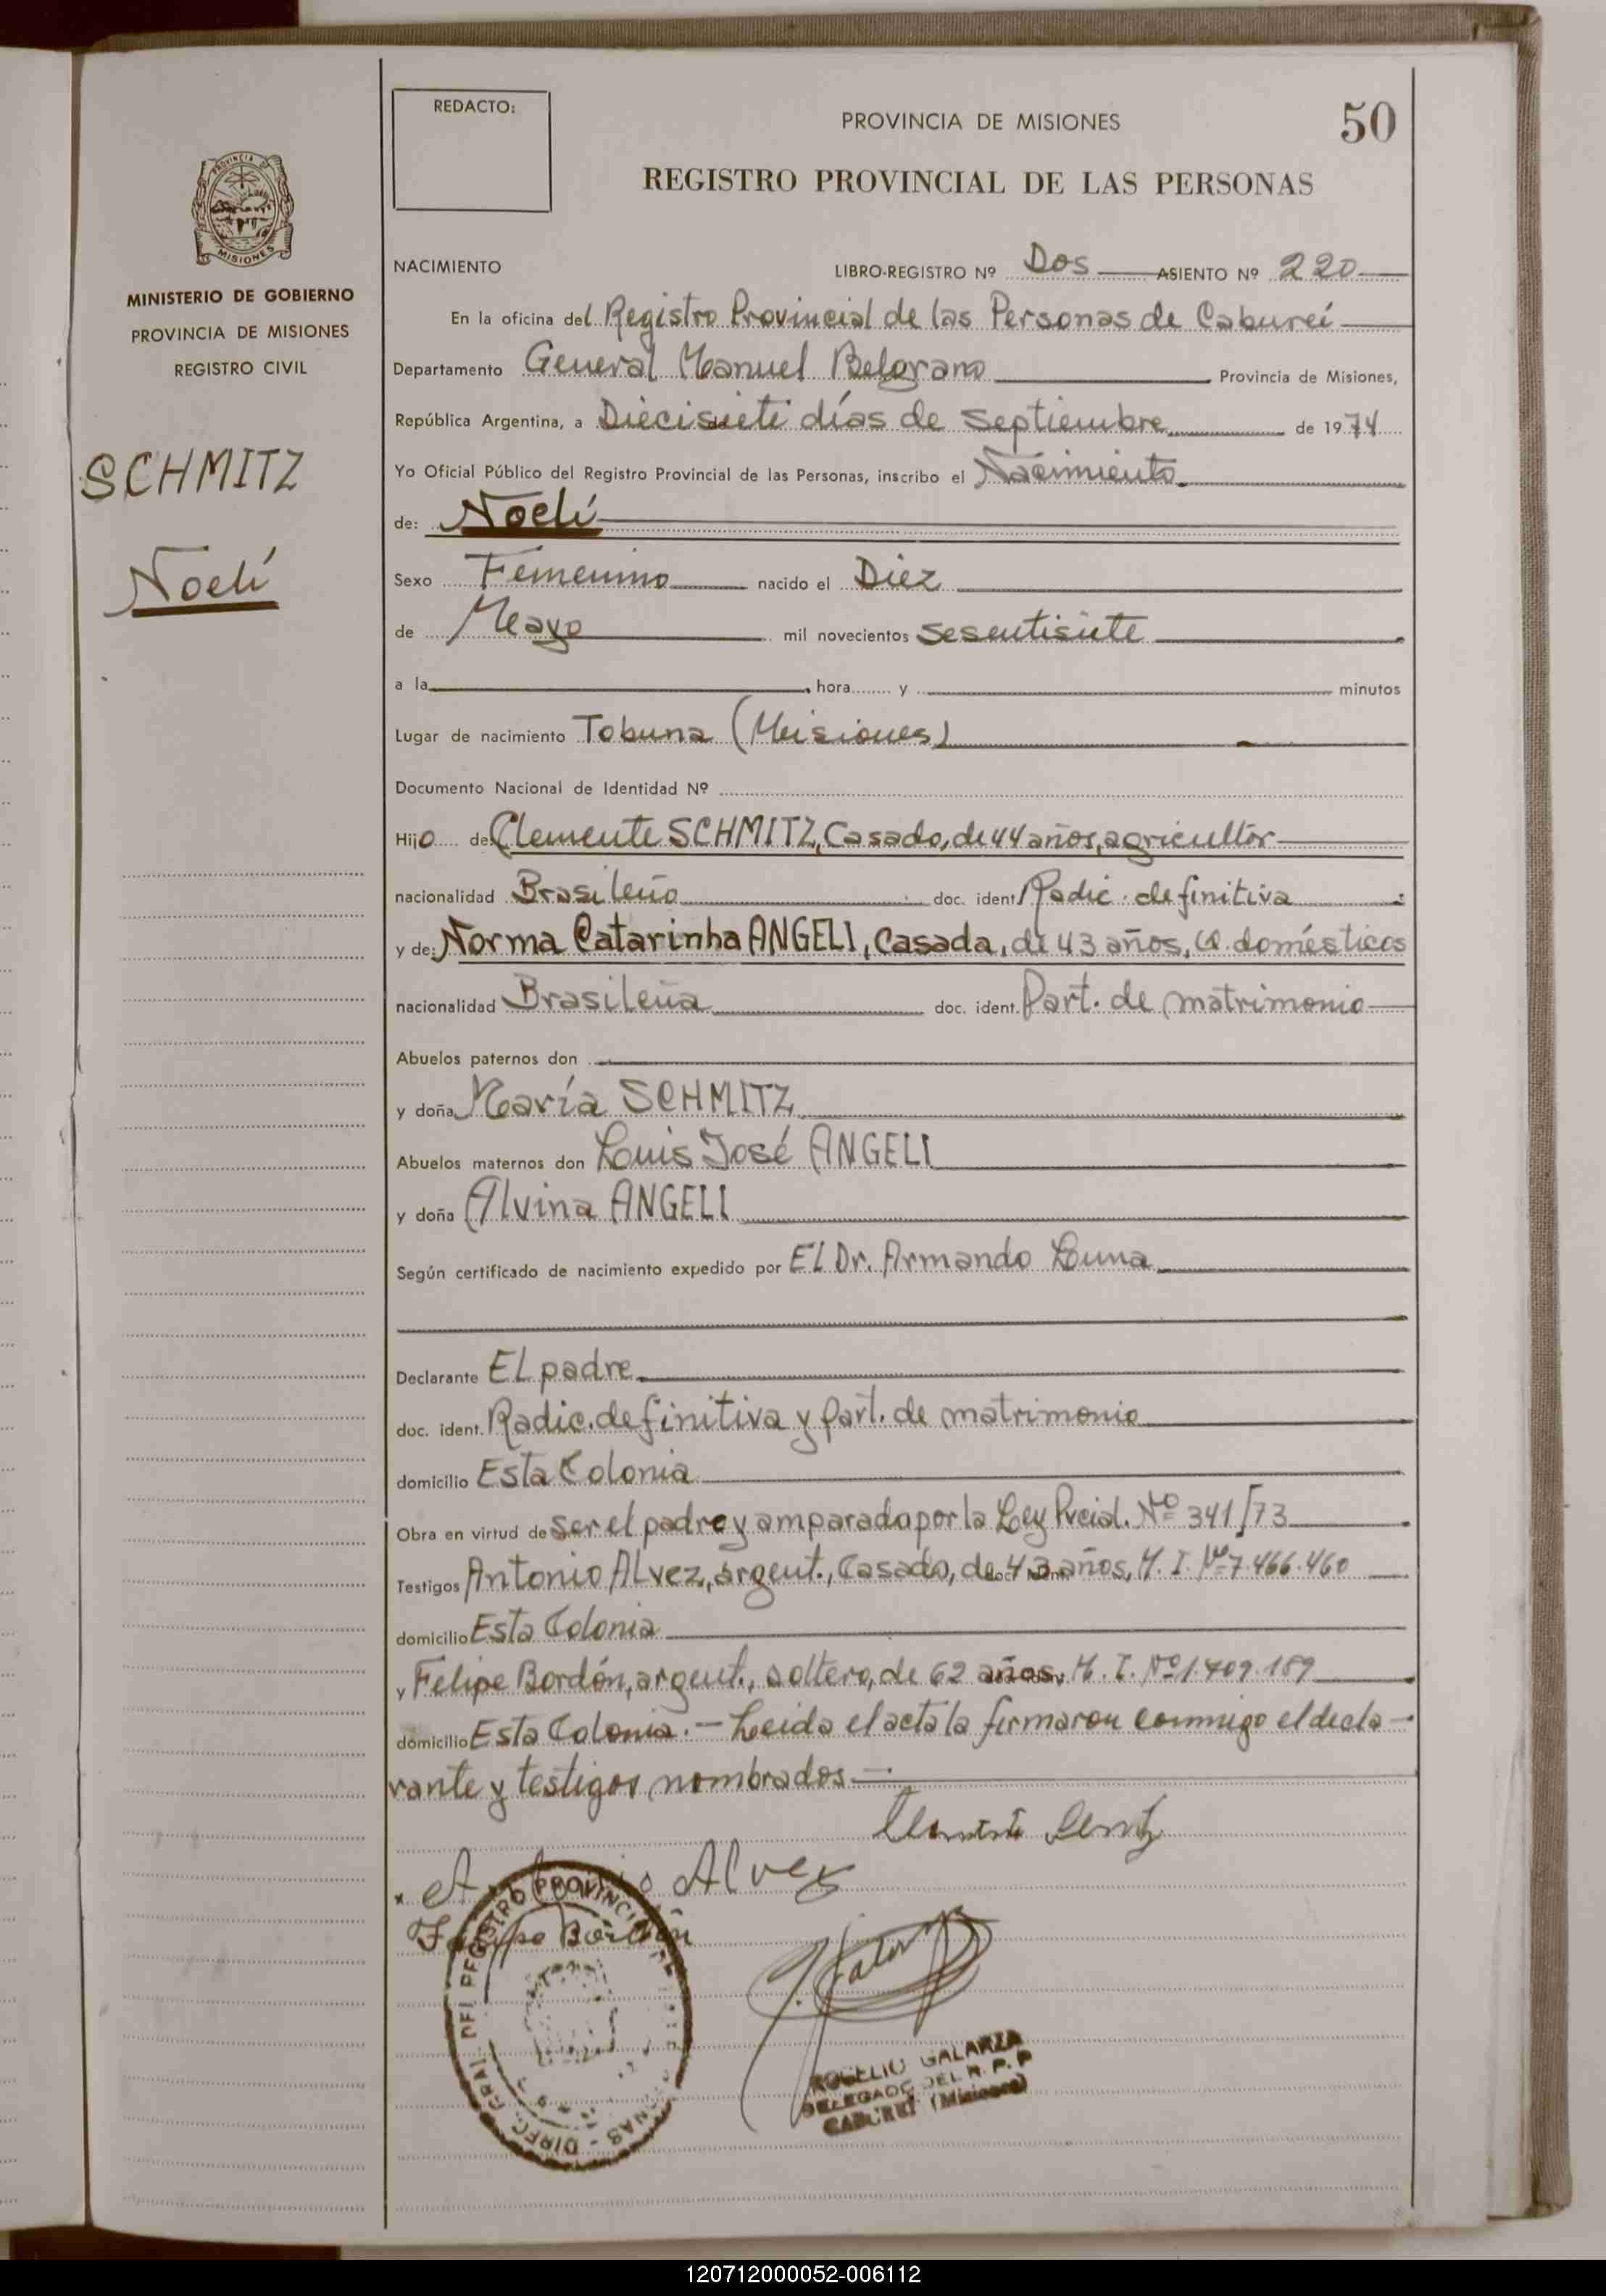 REDACTO:
PROVINCIA DE MISIONES
50
REGISTRO PROVINCIAL DE LAS PERSONAS
PROVINCIA DE
MISIONES
MINISTERIO DE GOBIERNO
PROVINCIA DE MISIONES
REGISTRO CIVIL
SCHMITZ
Noelí
NACIMIENTO
LIBRO-REGISTRO Nº Dos ASIENTO Nº 220
En la oficina del Registro Provincial de las Personas de Cabureí
Departamento General Manuel Belgrano Provincia de Misiones,
República Argentina, a Diecisiete días de Septiembre de 1974
Yo Oficial Público del Registro Provincial de las Personas, inscribo el Nacimiento
de: Noelí
Sexo Femenino nacido el Diez
de Mayo mil novecientos sesentisiete
a la hora y minutos
Lugar de nacimiento Tobuna (Misiones)
Documento Nacional de Identidad Nº
Hijo de: Clemente SCHMITZ, Casado, de 44 años, agricultor
nacionalidad Brasileño doc. ident. Radic. definitiva
y de: Norma Catarinha ANGELI, Casada, de 43 años, Q. domésticos
nacionalidad Brasileña doc. ident. Part. de matrimonio
Abuelos paternos don
y doña María SCHMITZ
Abuelos maternos don Luis José ANGELI
y doña Alvina ANGELI
Según certificado de nacimiento expedido por El Dr. Armando Luna
Declarante El padre
doc. ident. Radic. definitiva y part. de matrimonio
domicilio Esta Colonia
Obra en virtud de ser el padre y amparado por la Ley Pvcial. Nº 341/73
Testigos Antonio Alvez, argent., Casado, de 43 años, M. I. Nº 7.466.460
domicilio Esta Colonia
y Felipe Bordón, argent., soltero, de 62 años, M. I. Nº 1.709.189
domicilio Esta Colonia.- Leida el acta la firmaron conmigo el decla-
rante y testigos nombrados.-
Alvez
Felipe Bordón
DIREC. GRAL. DEL REGISTRO PROVINCIAL
ROGELIO GALARZA
DELEGADO DEL R. P. P
CABUREI (Misiones)
120712000052-006112